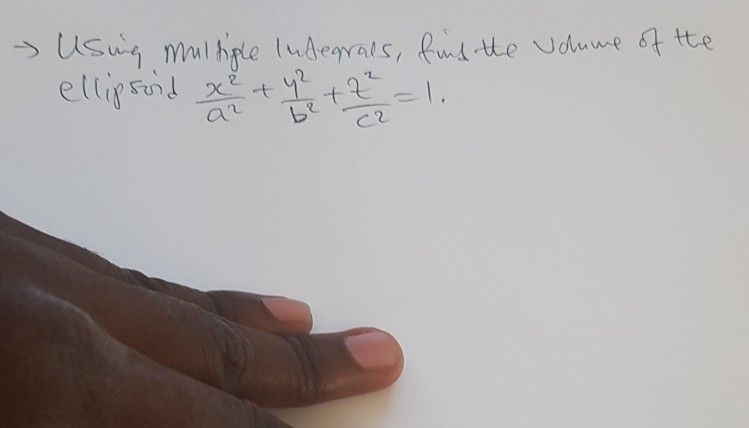 → Using multiple Integrals, find the volume of the
ellipsoid x²/a² + y²/b² + z²/c² = 1.